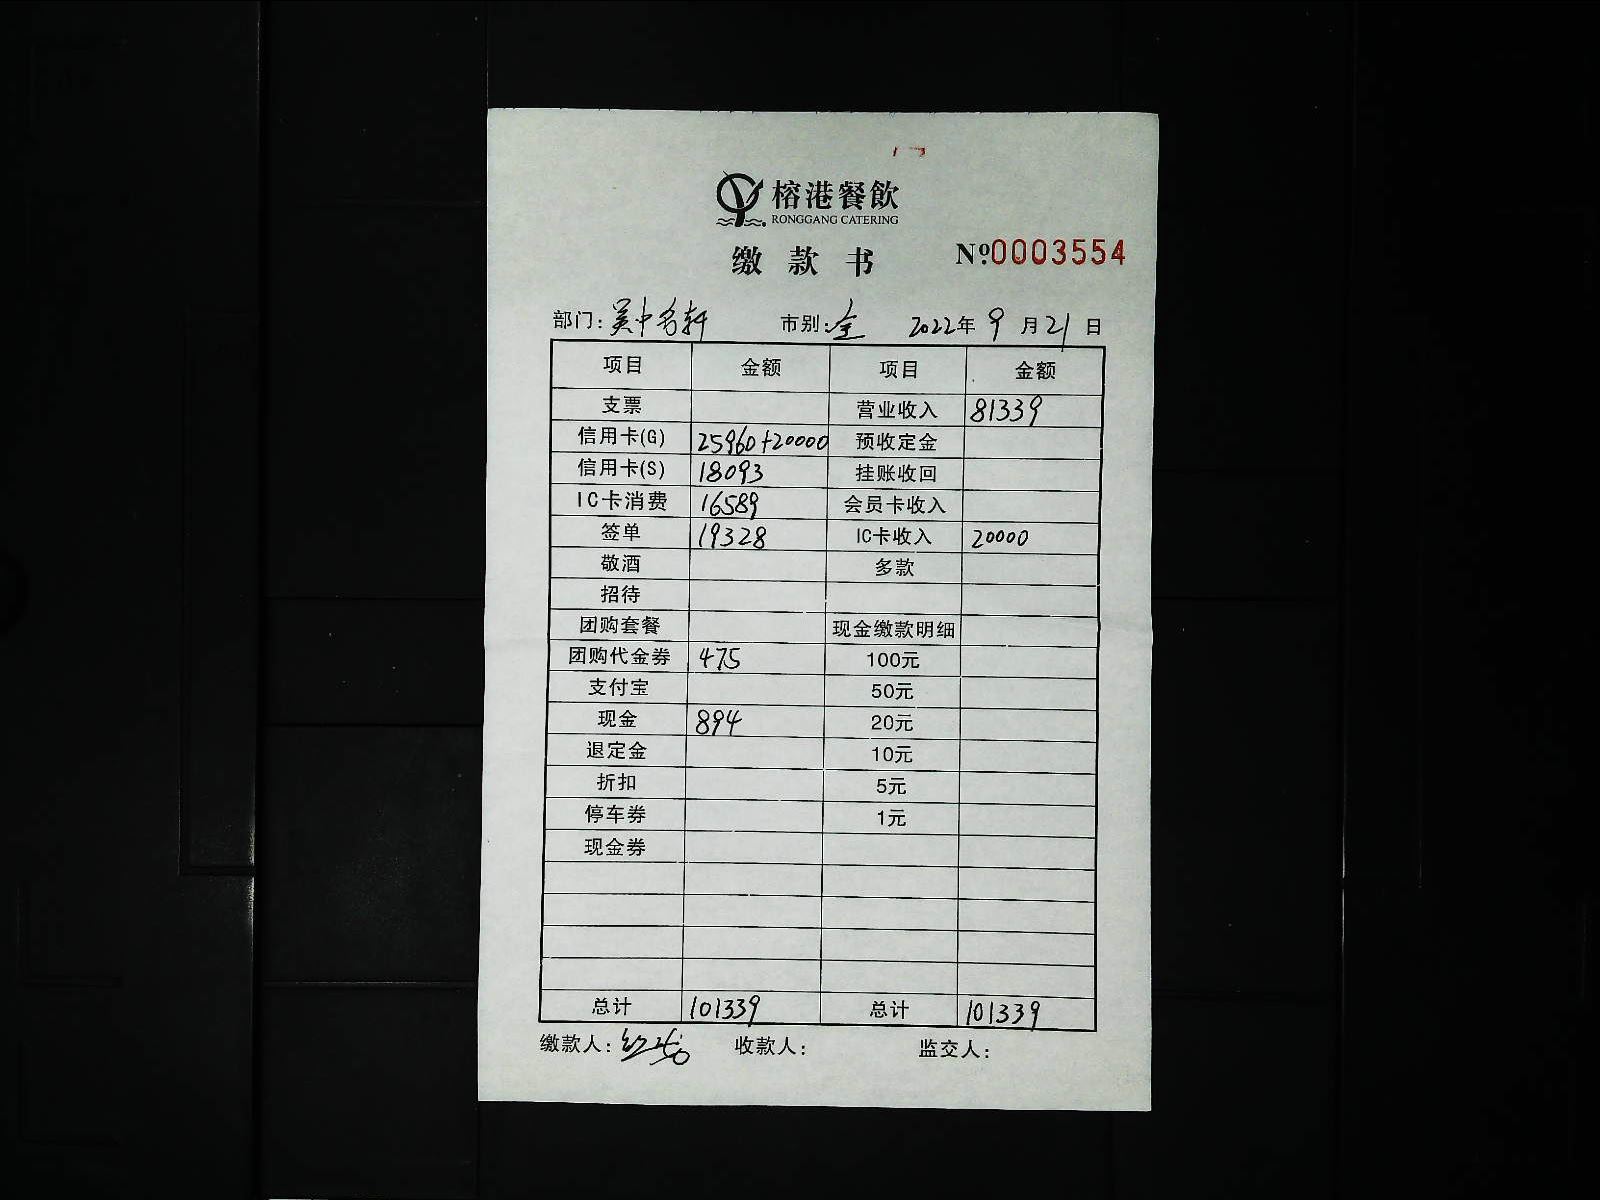 榕港餐飲
RONGGANG CATERING
缴款书 №0003554
部门: 吴中名轩 市别: 全 2022年9月21日
项目 金额 项目 金额
支票 营业收入 81339
信用卡(G) 25960+20000 预收定金
信用卡(S) 18093 挂账收回
IC卡消费 16589 会员卡收入
签单 19328 IC卡收入 20000
敬酒 多款
招待
团购套餐 现金缴款明细
团购代金券 475 100元
支付宝 50元
现金 894 20元
退定金 10元
折扣 5元
停车券 1元
现金券
总计 101339 总计 101339
缴款人: 收款人: 监交人: